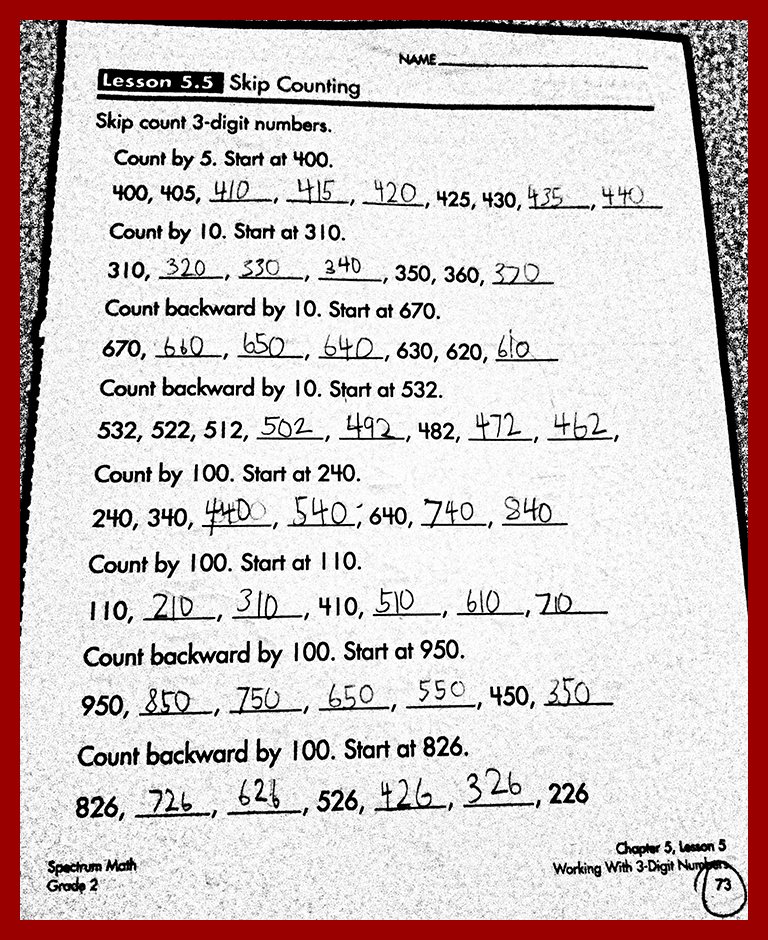 NAME
Lesson 5.5 Skip Counting
Skip count 3-digit numbers.
Count by 5. Start at 400.
400, 405, 410, 415, 420, 425, 430, 435, 440
Count by 10. Start at 310.
310, 320, 330, 340, 350, 360, 370
Count backward by 10. Start at 670.
670, 660, 650, 640, 630, 620, 610
Count backward by 10. Start at 532.
532, 522, 512, 502, 492, 482, 472, 462,
Count by 100. Start at 240.
240, 340, 440, 540, 640, 740, 840
Count by 100. Start at 110.
110, 210, 310, 410, 510, 610, 710
Count backward by 100. Start at 950.
950, 850, 750, 650, 550, 450, 350
Count backward by 100. Start at 826.
826, 726, 626, 526, 426, 326, 226
Spectrum Math
Grade 2
Chapter 5, Lesson 5
Working With 3-Digit Numbers
73